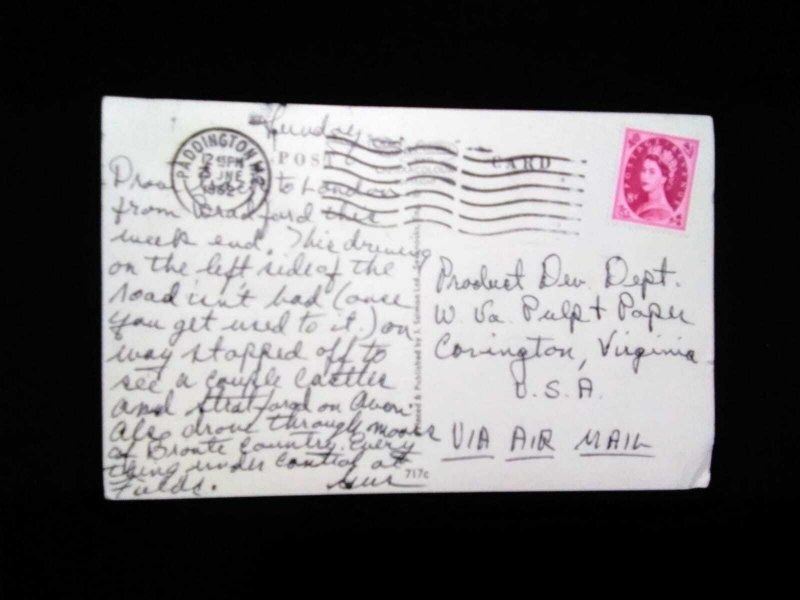 Sunday
PADDINGTON W.2
12 15 PM
JNE
1962
POST CARD
to London
from Bradford this
week end. This driving
on the left side of the
road isn't bad (once
you get used to it.) on
way stopped off to
see a couple Castles
and Stratford on Avon.
Also drove through moors
of Bronte Country. Every
thing under control at
Fields.
Gus
& Published by J. Salmon Ltd.
717c
Product Dev. Dept.
W. Va. Pulp + Paper
Covington, Virginia
U.S.A.
VIA AIR MAIL